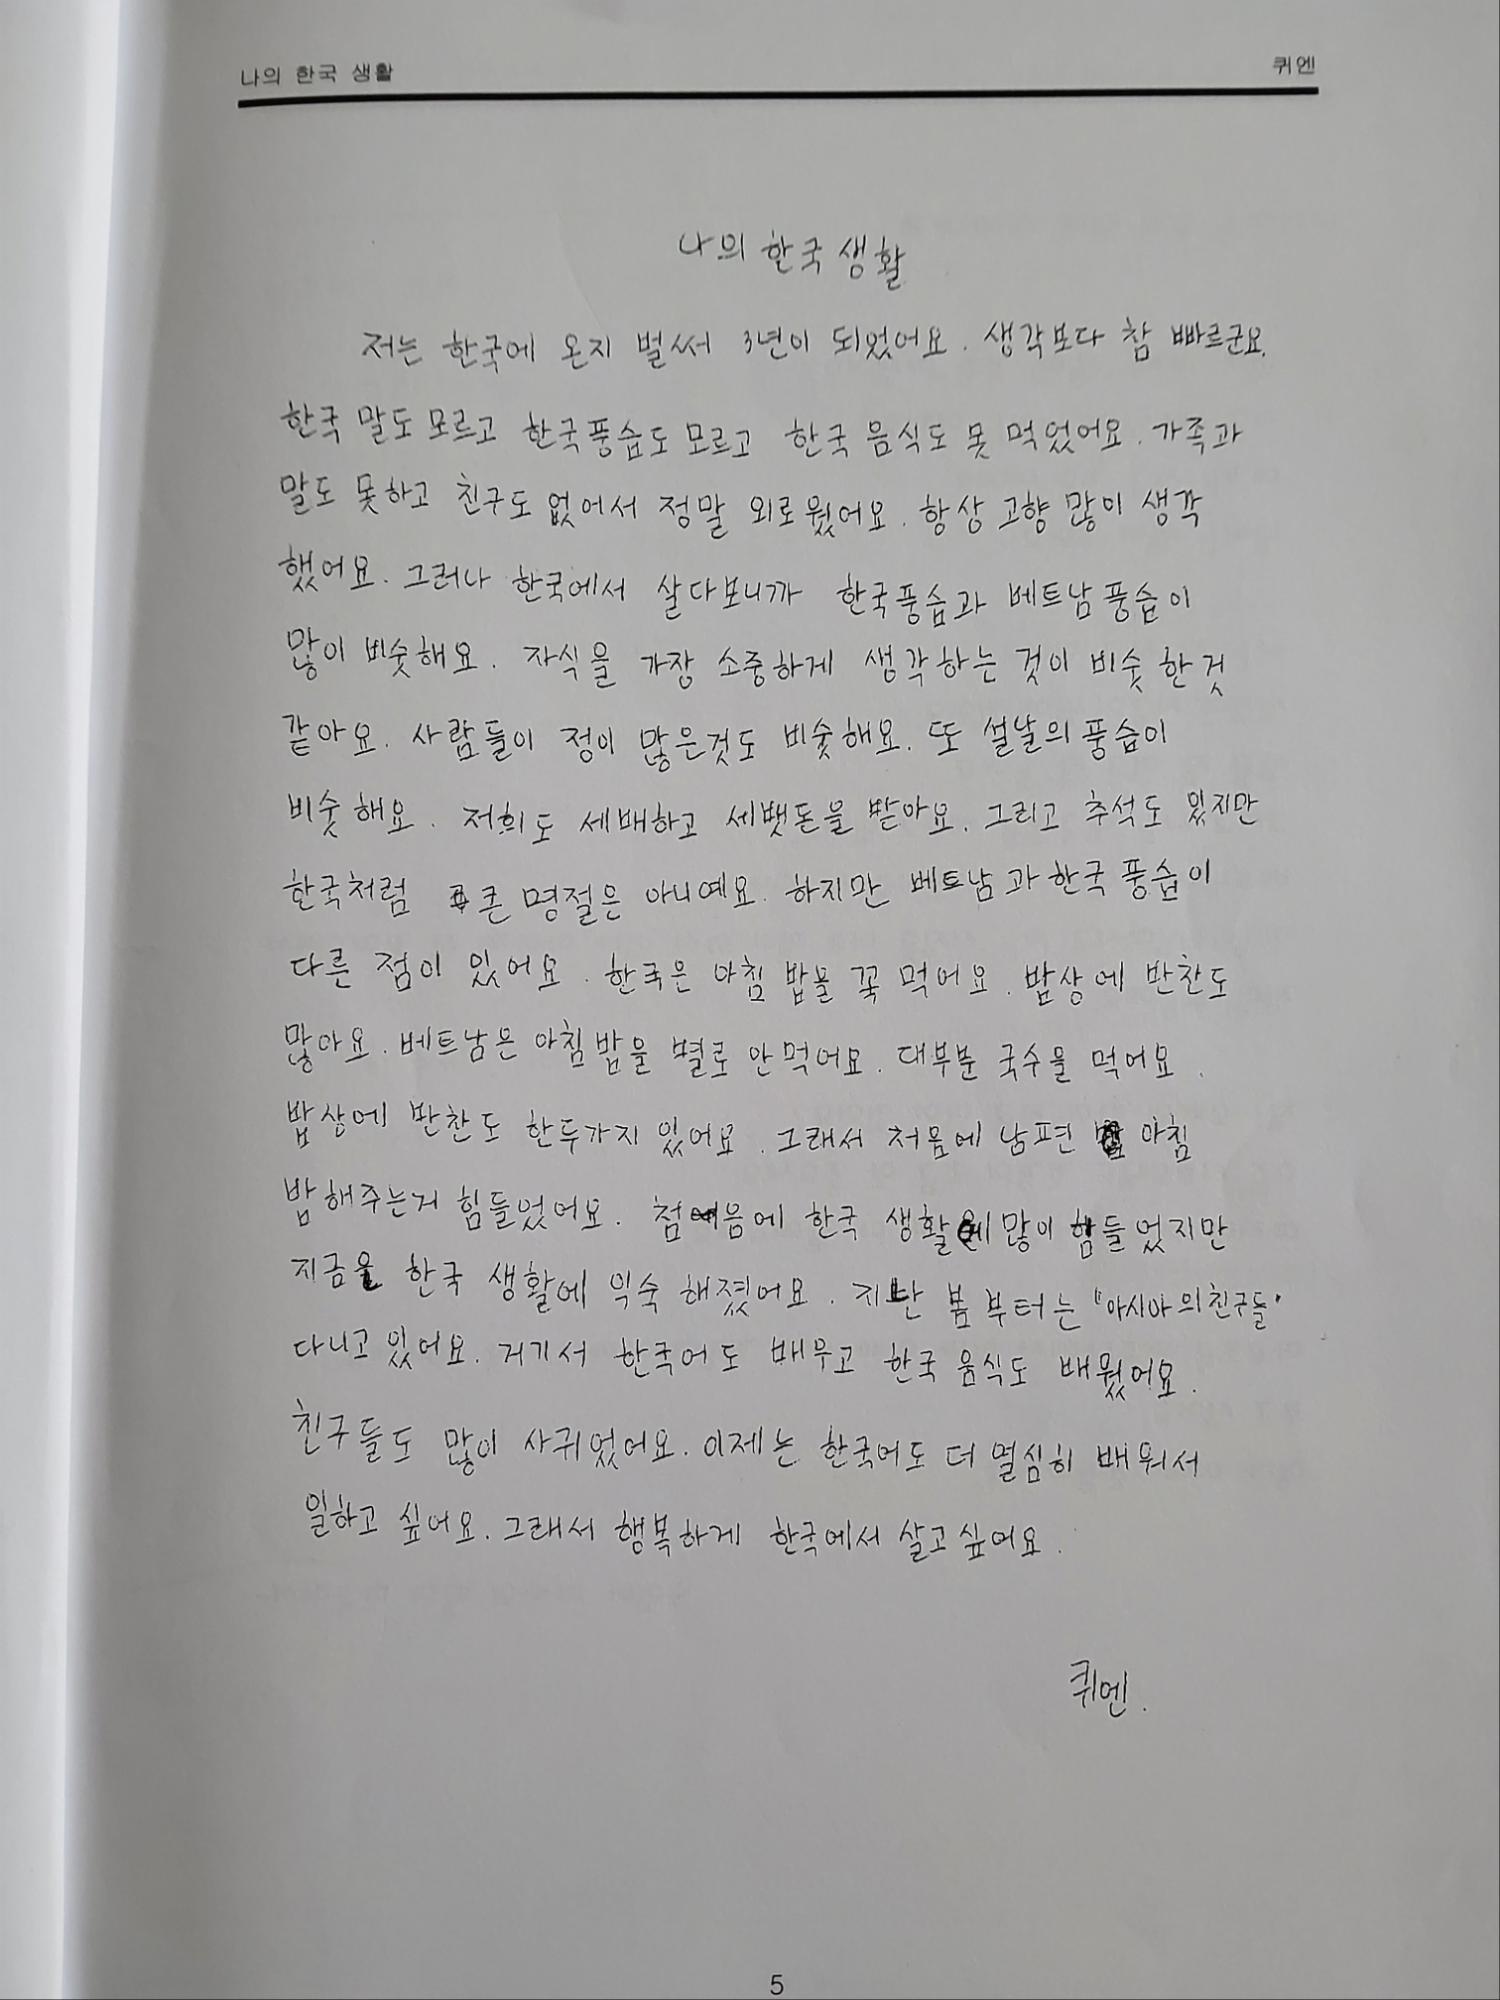 나의 한국 생활
퀴엔
나의 한국 생활
저는 한국에 온지 벌써 3년이 되었어요. 생각보다 참 빠르군요.
한국 말도 모르고 한국풍습도 모르고 한국 음식도 못 먹었어요. 가족과
말도 못하고 친구도 없어서 정말 외로웠어요. 항상 고향 많이 생각
했어요. 그러나 한국에서 살다보니까 한국풍습과 베트남풍습이
많이 비슷해요. 자식을 가장 소중하게 생각하는 것이 비슷 한것
같아요. 사람들이 정이 많은것도 비슷해요. 또 설날의 풍습이
비슷해요. 저희도 세배하고 세뱃돈을 받아요. 그리고 추석도 있지만
한국처럼 큰 명절은 아니예요. 하지만 베트남과 한국풍습이
다른 점이 있어요. 한국은 아침 밥을 꼭 먹어요. 밥상에 반찬도
많아요. 베트남은 아침밥을 별로 안먹어요. 대부분 국수을 먹어요.
밥상에 반찬도 한두가지 있어요. 그래서 처음에 남편 아침
밥해주는거 힘들었어요. 첨음에 한국 생활에 많이 힘들었지만
지금은 한국 생활에 익숙 해졌어요. 지난 봄부터는 "아시아의친구들"
다니고 있어요. 거기서 한국어도 배우고 한국 음식도 배웠어요.
친구들도 많이 사귀었어요. 이제는 한국어도 더 열심히 배워서
일하고 싶어요. 그래서 행복하게 한국에서 살고싶어요.
퀴엔.
5